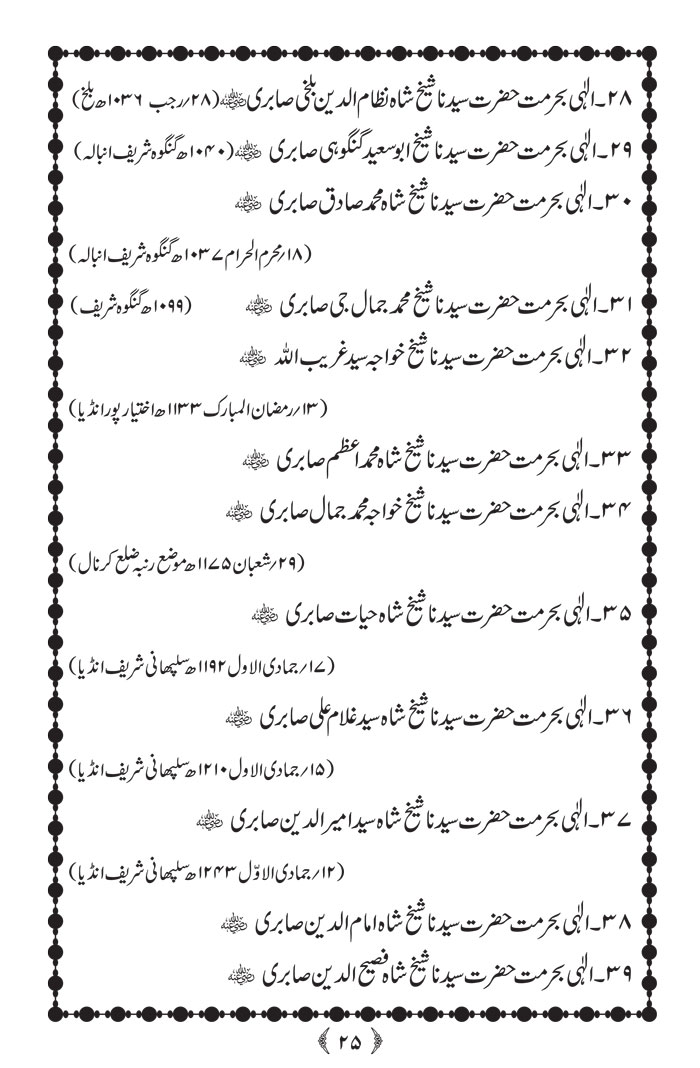 ۲۸۔الٰہی بحرمت حضرت سیدنا شیخ شاہ نظام الدین بلخی صابری رضی اللہ عنہ (۲۸؍رجب ۱۰۳۶ھ بلخ)
۲۹۔الٰہی بحرمت حضرت سیدنا شیخ ابوسعید گنگوہی صابری رضی اللہ عنہ (۱۰۴۰ھ گنگوہ شریف انبالہ)
۳۰۔الٰہی بحرمت حضرت سیدنا شیخ شاہ محمد صادق صابری رضی اللہ عنہ
(۱۸؍محرم الحرام ۱۰۳۷ھ گنگوہ شریف انبالہ)
۳۱۔الٰہی بحرمت حضرت سیدنا شیخ محمد جمال جی صابری رضی اللہ عنہ (۱۰۹۹ھ گنگوہ شریف)
۳۲۔الٰہی بحرمت حضرت سیدنا شیخ خواجہ سید غریب اللہ رضی اللہ عنہ
(۱۳؍رمضان المبارک ۱۱۳۳ھ اختیار پور انڈیا)
۳۳۔الٰہی بحرمت حضرت سیدنا شیخ شاہ محمد اعظم صابری رضی اللہ عنہ
۳۴۔الٰہی بحرمت حضرت سیدنا شیخ خواجہ محمد جمال صابری رضی اللہ عنہ
(۲۹؍شعبان ۱۱۷۵ھ موضع رنبہ ضلع کرنال)
۳۵۔الٰہی بحرمت حضرت سیدنا شیخ شاہ حیات صابری رضی اللہ عنہ
(۱۷؍جمادی الاول ۱۱۹۲ھ سلپھانی شریف انڈیا)
۳۶۔الٰہی بحرمت حضرت سیدنا شیخ شاہ سید غلام علی صابری رضی اللہ عنہ
(۱۵؍جمادی الاول ۱۲۱۰ھ سلپھانی شریف انڈیا)
۳۷۔الٰہی بحرمت حضرت سیدنا شیخ شاہ سید امیر الدین صابری رضی اللہ عنہ
(۱۲؍جمادی الاوّل ۱۲۴۳ھ سلپھانی شریف انڈیا)
۳۸۔الٰہی بحرمت حضرت سیدنا شیخ شاہ امام الدین صابری رضی اللہ عنہ
۳۹۔الٰہی بحرمت حضرت سیدنا شیخ شاہ فصیح الدین صابری رضی اللہ عنہ
﴿۲۵﴾